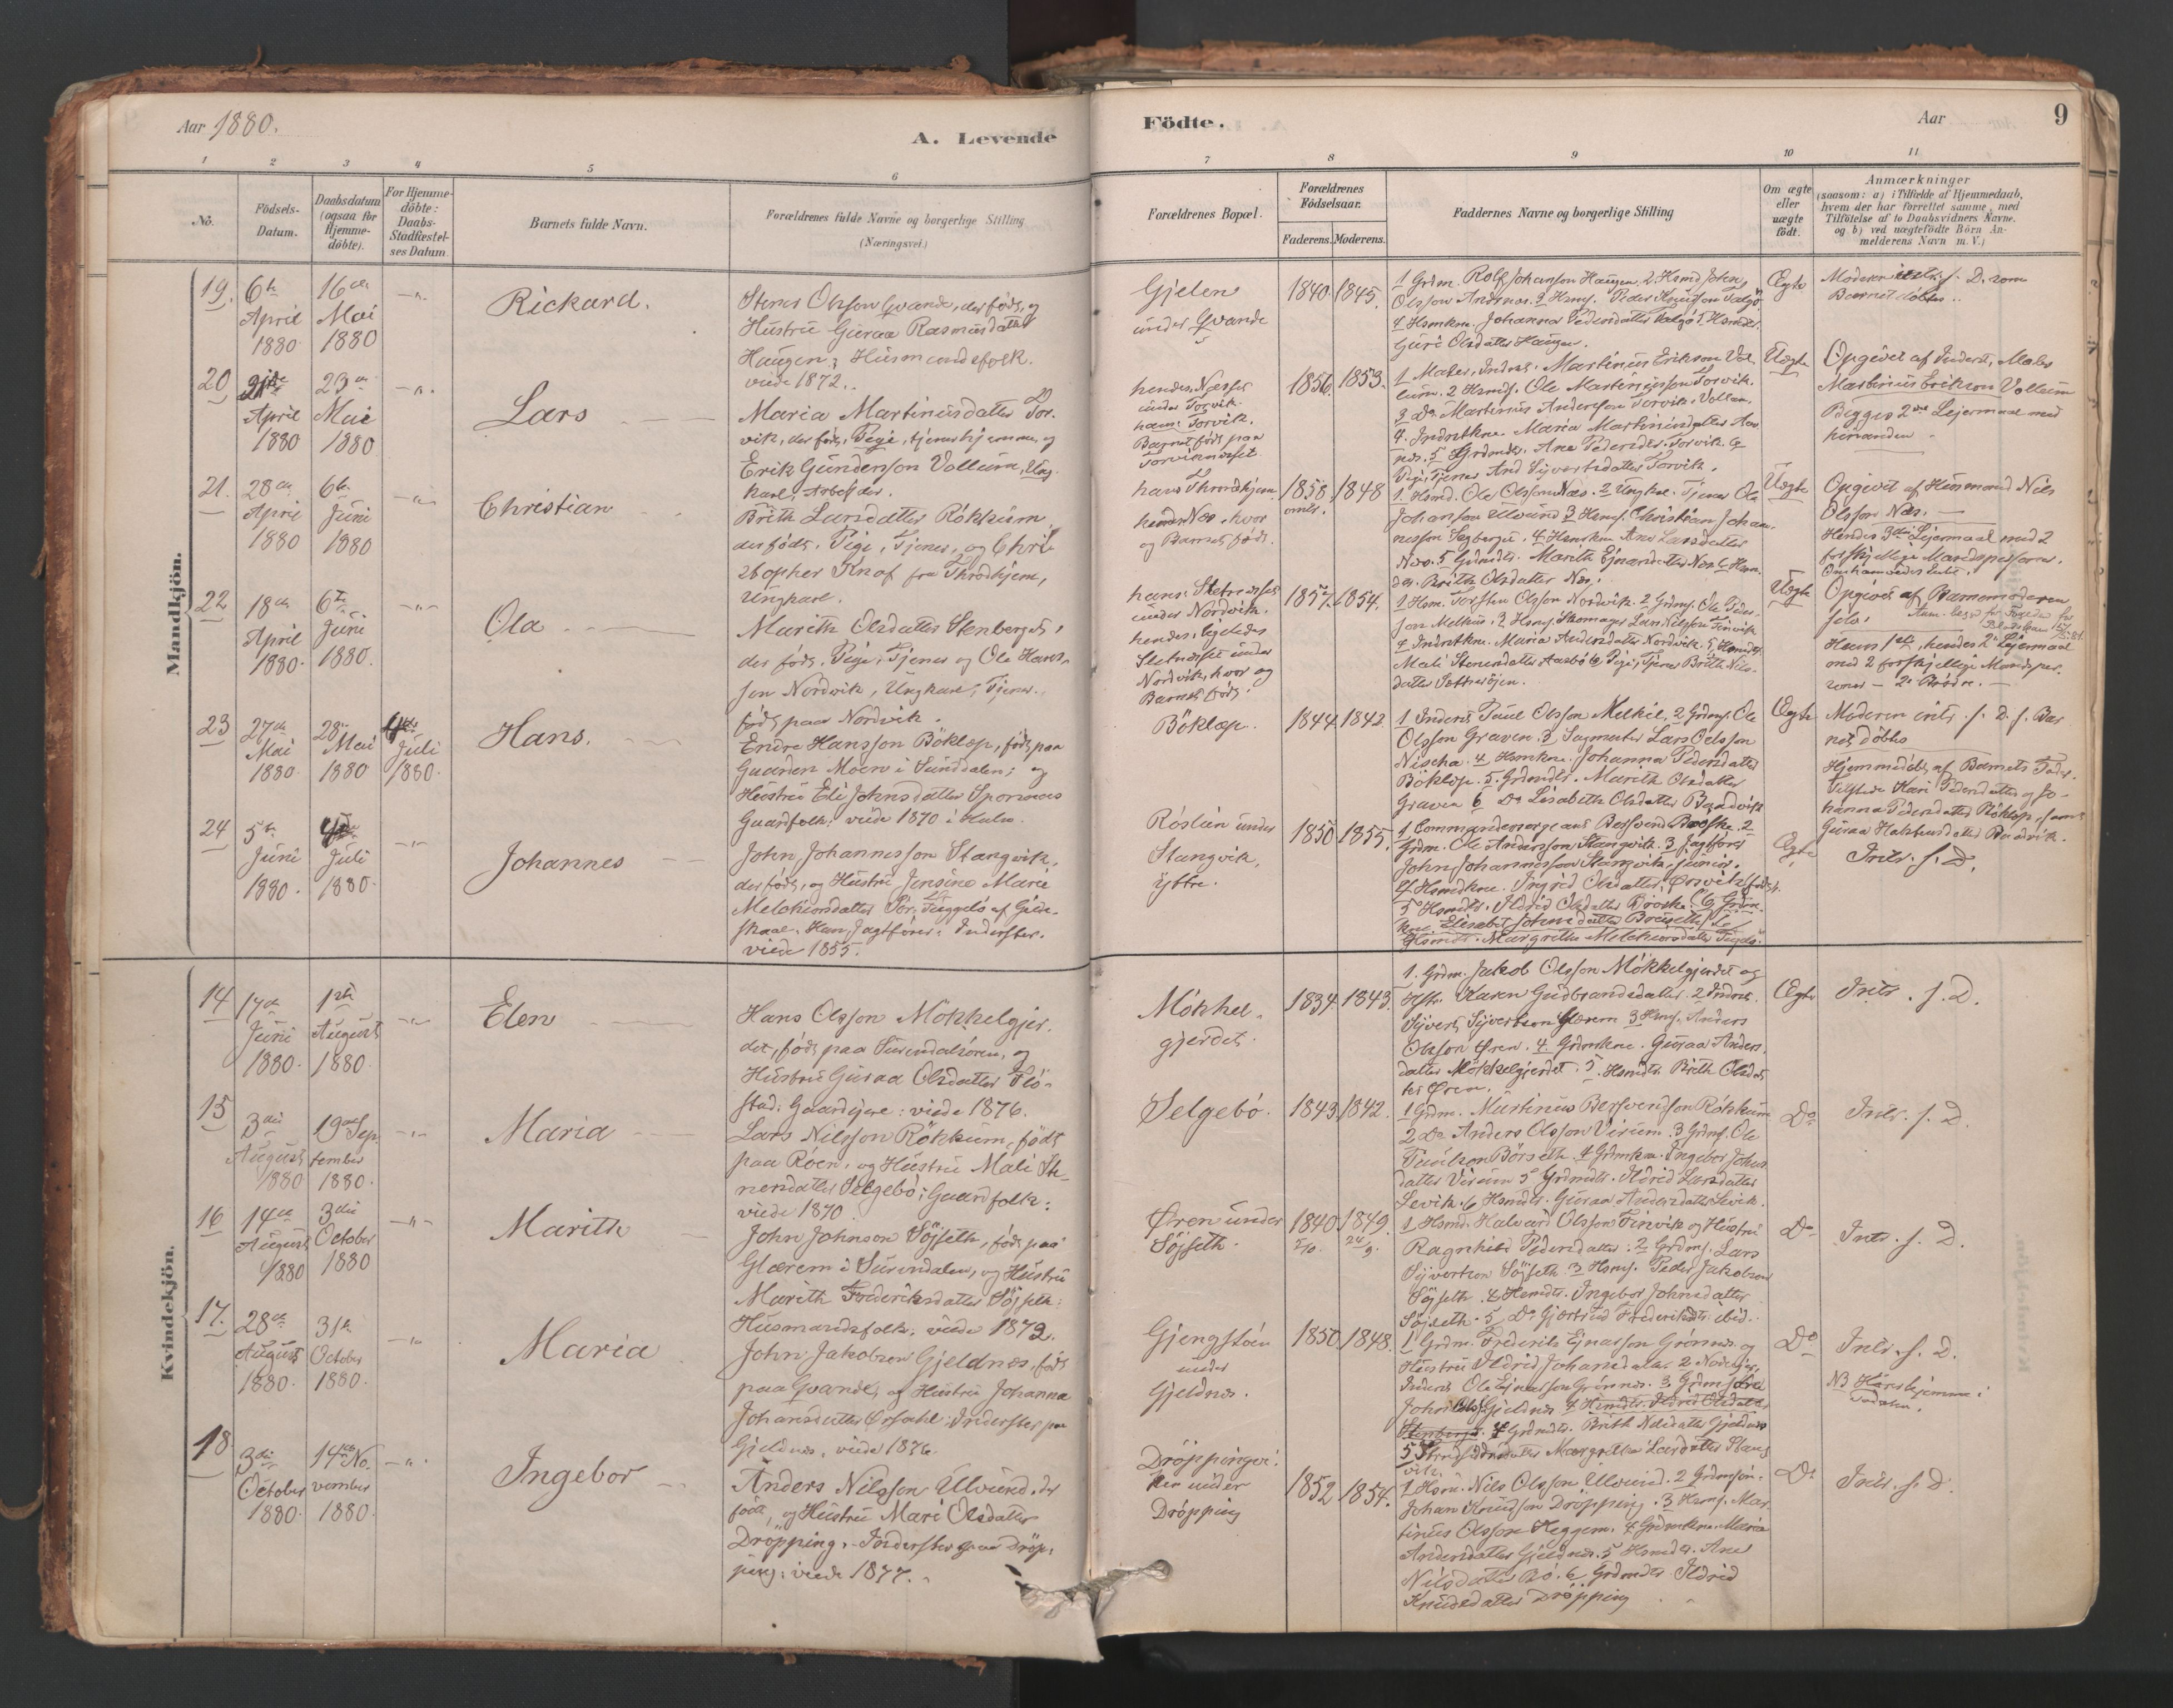 Aar 1880.
A. Levende
Födte.
Aar
9
1
2
3
4
5
6
7
8
9
10
11
No.
Födsels-
Datum.
Daabsdatum
(ogsaa for
Hjemme-
döbte).
For Hjemme-
döbte:
Daabs-
Stadfæstel-
ses Datum.
Barnets fulde Navn.
Forældrenes fulde Navne og borgerlige Stilling
(Næringsvei.)
Forældrenes Bopæl.
Forældrenes
Födselsaar.
Faderens.
Moderens.
Faddernes Navne og borgerlige Stilling
Om ægte
eller
uægte
født.
Anmærkninger
(saasom: a) i Tilfælde af Hjemmedaab,
hvem der har forrettet samme, med
Tilföielse af to Daabsvidners Navne.
og b) ved uægtefödte Börn An-
melderens Navn m. V.)
Mandkjön.
19.
6te
April
1880
16de
Mai
1880
Rickard.
Olsson Qvande, der föds, og
Hustru Guraa Rasmusdatter
Haugen; Husmandsfolk.
viede 1872.
Gjelen
under Qvande
1840.
1845.
1 Grdm. Rolf Johanson Haugen 2 Hsmd John
Olsson Andsnas. 3 Hsmf. Peder Knudson Talgö
4 Hsmkne. Johanna Pedersdatter Talgö 5 Hsmdtr.
Guri Olsdatter Haugen.
Ægte
Moderen intr. f. D. som
Barnet döbtes.
20
April
1880
23de
Mai
1880
Lars
Maria Martinusdatter Tor-
vik, der föds, Pige, tjener hjemme, og
Erik Gundersson Vollum, Ung-
karl, Arbejder.
hendes Næsset
under Torvik.
hans: Torvik.
Barnet föds paa
Torviknæset.
1856.
1853.
1 Maler, Inders. Martinus Erikson Vol-
lum. 2 Hsmds. Ole Martinusson Torvik.
3 Do Martinus Andersson Torvik-Vollan.
4. Indrstkne. Maria Martinusdatter Aas-
næs. 5 Grdmdtr. Ane Pedersdtr. Torvik. 6
Pige, Tjener And Sjvertsdatter Torvik.
Uægte
Opgivet af Inderst, Maler
Martinus Erikson Vollum
Begges 2det Lejermaal med
hinanden
21.
28de
April
1880
6te
Juni
1880
Christian
Brith Larsdatter Rökkum,
der föds. Pige, Tjener, og Chri-
stopher Knof fra Throndhjem,
Ungkarl.
hans Throndhjem
hendes Næs, hvor
og Barnet föds.
1858
1848
1. Hsmd. Ole Olsson Næs. 2 Ungkar. Tjener Ole
Johansson Ulvund 3 Hsmf. Christian Johan-
nesson Sagberget. 4 Hsmkne Ane Larsdatter
Næs. 5 Grdmdtr. Marith Ejnarsdatter Næs. 6 Hsm-
dtr. Brith Olsdatter Næs.
Uægte
Opgivet af Husmand Niels
Olsson Næs.
Hendes 3die Lejermaal med 2
forskjellige Mandspersoner.
22
18de
April
1880.
6te
Juni
1880.
Ola
Marith Olsdatter Stenberget,
der föds. Pige, Tjener og Ole Hans-
son Nordvik, Ungkarl, Tjener,
föds paa Nordvik.
under Nordvik.
hendes: ligeledes
under
Nordvik, hvor og
Barnet föds.
1857.
1854.
1 Hsm. Torsten Olsson Nordvik. 2 Grdmf. Ole Peder-
son Melhus. 3 Hsmf. Skomager Lars Nilsson Tinvik
4 Indrstkne. Maria Andersdatter Nordvik. 5 Hsmdtr.
Mali Stenersdatter Aasbö 6 Pige, Tjener Brith Nils-
datter
Uægte
Opgivet af Barnemoderen
selv.
Hans 1ste, hendes 2det Lejermaal
med 2 forskjellige Mandsper-
soner — 2 Brödre.
23
27de
Mai
1880
28de
Mai
1880
4de
Juli
1880.
Hans.
Endre Hansson Böklep, föds paa
Gaarden Moen i Sunddalen; og
Hustru Eli Johnsdatter Spornæs
Gaardfolk: viede 1870 i Halse.
Böklep.
1844.
1842.
1 Inders Paul Olsson Melhus, 2 Grdmf. Ole
Olsson Graven. 3 Sagmester Lars Oelsson
Nischa. 4 Hsmkne. Johanna Pedersdatter
Böklep. 5. Grdmdtr. Marith Olsdatter
Graven 6 Do Lisabeth Olsdatter Baadvik
Ægte
Moderen intr. f. D. f. Bar-
net döbtes
Hjemmedöbt af Barnets Fader.
Tilstede Kari Pedersdatter og Jo-
hanna Pedersdatter Böklep, samt
Guraa Halstensdatter Baadvik.
24
5te
Juni
1880.
4de
Juli
1880.
Johannes
John Johannesson Stangvik,
der föds, og Hustru Jensine Marie
Melchiorsdatter af Gilde-
skaal. Han Jagtförer: Inderster.
viede 1855.
Röslien under
Stangvik,
ÿttre.
1850
1855.
1 Commandersergeant Bersvend Broske. 2
Grdm. Ole Andersson Stangvik. 3 Jagtförer
John Johannesson Stangvik, junior.
4 Hsmdkne. Ingrid Olsdatter, Ørsvik
5 Hsmdtr. Ildrid Olsdatter Broske (6 Grdm-
kne. Elisabet Johnsdatter
Hsmdtr. Margrethe Melchiorsdatter
Ægte
Intr. f. D.
Kvindekjön.
14
17de
Juni
1880.
1ste
August
1880
Elen
Hans Olsson Mökkelgjer-
det, föds paa Surendalsören, og
Hustru Guraa Olsdatter Flö-
stad: Gaardejere: viede 1876.
Mökkel-
gjerdet.
1834.
1843.
1. Grdm. Jakob Olsson Mökkelgjerdet og
Hstr. Karen Gudbrandsdatter. 2 Inders.
Sjverts Sjvertson Glærem 3 Hsmf. Anders
Olsson Øren. 4. Grdmkne. Guraa Anders-
datter Mökkelgjerdet. 5. Hsmdtr. Brith Olsdat-
ter Øren.
Ægte
Intr. f. D.
15
3die
August
1880
19de Sep-
tember
1880.
Maria
Lars Nilsson Rökkum, föds
paa Röen, og Hustru Mali Ste-
nersdatter Selgebö; Gaardfolk:
viede 1870.
Selgebö.
1843.
1842.
1 Grdm. Martinus Bersvendson Rökkum
2 Do Anders Olsson Virum. 3 Grdmf. Ole
Paulson Börseth. 4 Grdmkne. Ingebor Johns-
datter Virum 5 Grdmdtr. Ildrid Larsdatter
Sevik. 6 Hsmdtr. Guraa Andersdatter Sevik.
Do
Intr. f. D.
16
14de
August
1880
3die
October
1880
Marith
John Johnson Söjseth, föds paa
Glærem i Surendalen, og Hustru
Marith Frederiksdatter Söjseth:
Husmandsfolk: viede 1872.
Øren under
Söjseth.
1840
1849.
24/9.
1 Hsmd. Halvard Olsson Tinvik og Hustru
Ragnhild Pedersdatter. 2 Grdmf. Lars
Sjvertson Söjseth 3 Hsmf. Peder Jakobson
Söjseth. 4 Hsmdtr. Ingebor Johnsdatter
Söjseth. 5 Do Gjertrud Frederiksdtr. ibid.
Do
Intr. f. D.
17.
28de
August
1880.
31te
October
1880.
Maria
John Jakobson Gjeldnæs, föds
paa Qvande, og Hustru Johanna
Johansdatter Ørsahl: Inderster paa
Gjeldnæs, viede 1876.
Gjengstöen
under
Gjeldnæs.
1850
1848.
1 Grdm. Frederik Ejnarsson Grönnæs og
Hustru Ildrid Johansdatter 2
Inders Ole Ejnarsson Grönnæs. 3 Grdmf
John Gjeldnæs 4 Hsmdtr. Ildrid Olsdatter
Stenberget. 4 Grdmdtr. Brith Nilsdatter Gjeldnæs
5 Margrethe Larsdatter Stang-
vik.
Do
Intr. f. D.
NB Hans hjemme i
18
3die
October
1880.
14de No-
vember
1880.
Ingebor
Anders Nilsson Ulvund, der
födt, og Hustru Mari Olsdatter
Dröpping, Inderster paa Dröp-
ping: viede 1877.
under
Dröpping
1852
1854.
1 Hsm. Nils Olsson Ulvund. 2 Grdmsön.
Johan Knudson Dröpping. 3 Hsmf. Mar-
tinus Olsson Heggem. 4 Grdmkne. Maria
Andersdatter Gjeldnæs. 5 Hsmdtr. Ane
Nilsdatter Bö. 6 Grdmdtr. Ildrid
Knudsdatter Dröpping
Do
Intr. f. D.